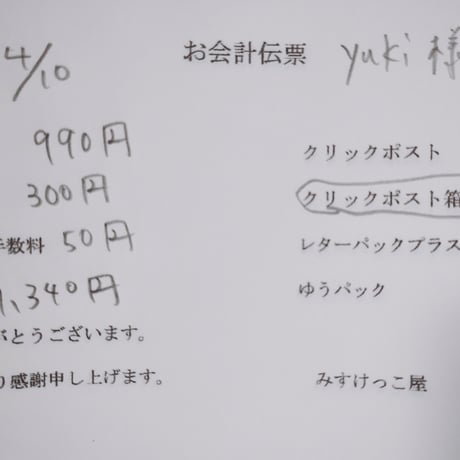 4/10 お会計伝票 yuki 様
990円 クリックポスト
300円 クリックポスト箱
手数料 50円 レターパックプラス
1,340円 ゆうパック
がとうございます。
り感謝申し上げます。 みすけっこ屋